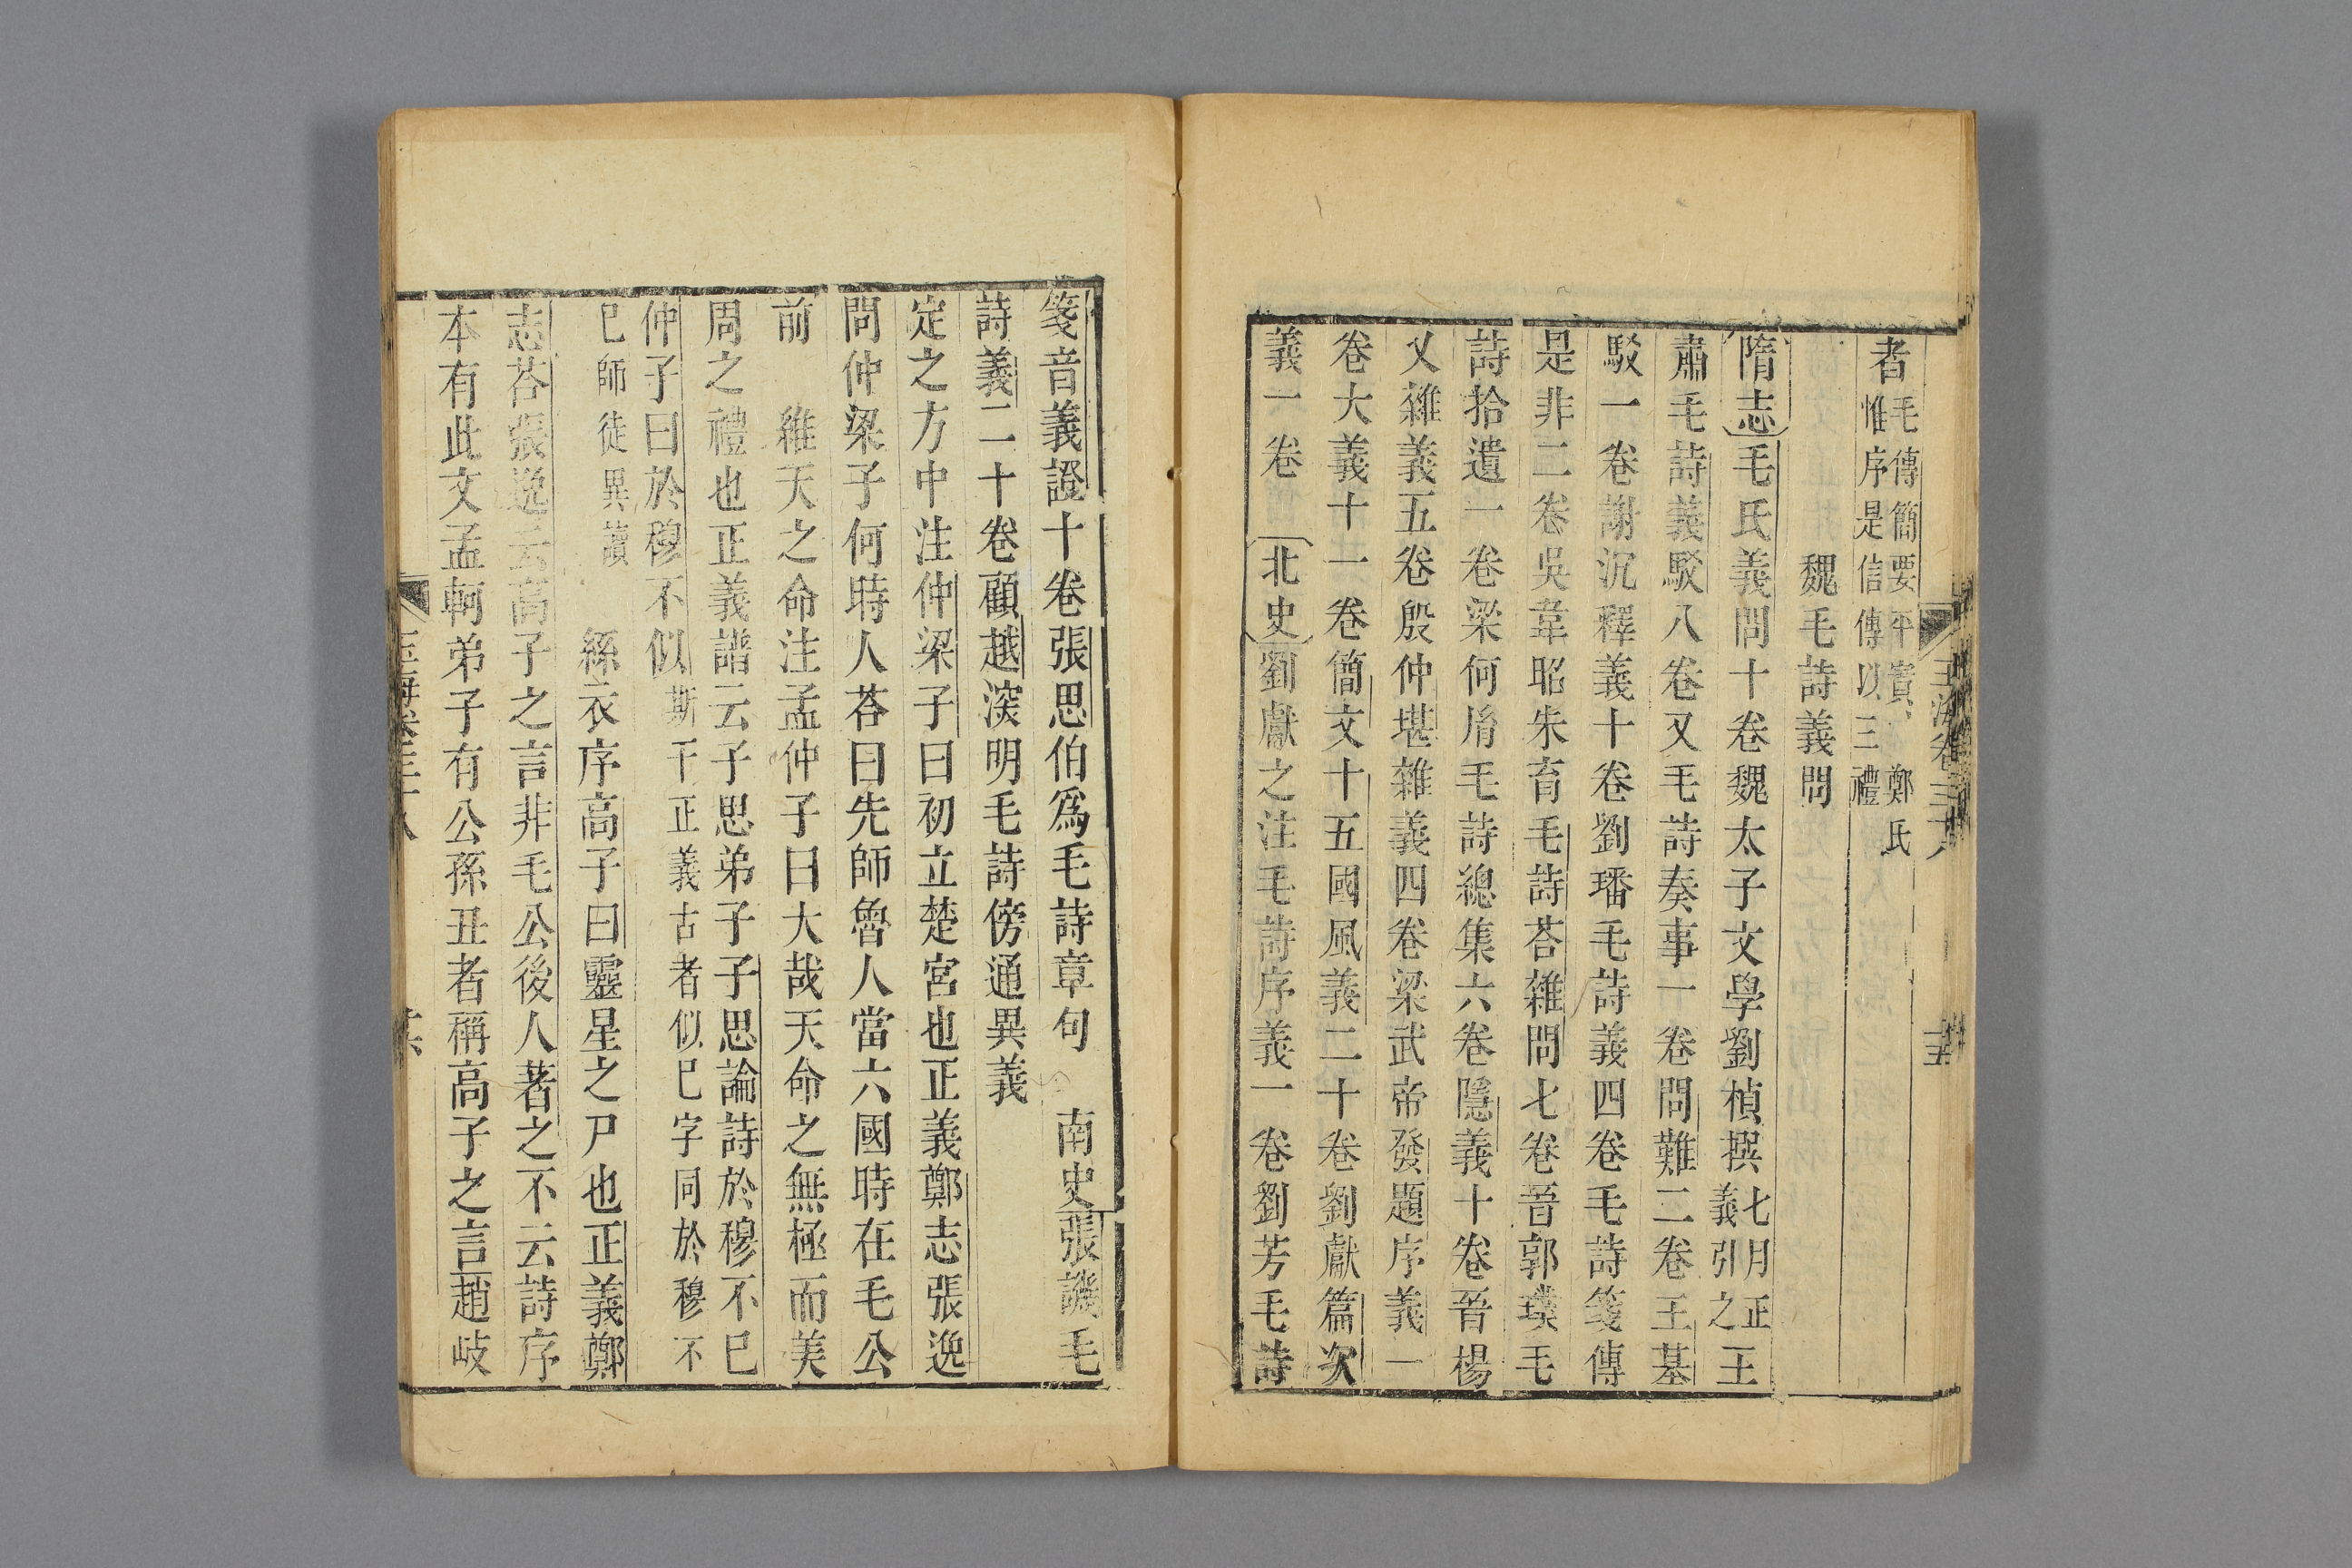 玉海卷三十八
十五
者毛傳簡要平實鄭氏
惟序是信傳以三禮
魏毛詩義問
隋志毛氏義問十卷魏太子文學劉楨撰七月正
義引之王
肅毛詩義駁八卷又毛詩奏事一卷問難二卷王基
駁一卷謝沉釋義十卷劉璠毛詩義四卷毛詩箋傳
是非二卷吳韋昭朱育毛詩荅雜問七卷晉郭璞毛
詩拾遺一卷梁何㣧毛詩總集六卷隱義十卷晉楊
乂雜義五卷殷仲堪雜義四卷梁武帝發題序義一
卷大義十一卷簡文十五國風義二十卷劉獻篇次
義一卷北史劉獻之注毛詩序義一卷劉芳毛詩
箋音義證十卷張思伯爲毛詩章句南史張譏毛
詩義二十卷顧越深明毛詩傍通異義
定之方中注仲梁子曰初立楚宮也正義鄭志張逸
問仲梁子何時人荅曰先師魯人當六國時在毛公
前維天之命注孟仲子曰大哉天命之無極而美
周之禮也正義譜云子思弟子子思論詩於穆不巳
仲子曰於穆不似斯干正義古者似巳字同於穆不
巳師徒異讀絲衣序高子曰靈星之尸也正義鄭
志荅張逸云高子之言非毛公後人著之不云詩序
本有此文孟軻弟子有公孫丑者稱高子之言趙岐
玉海卷三十八
十六